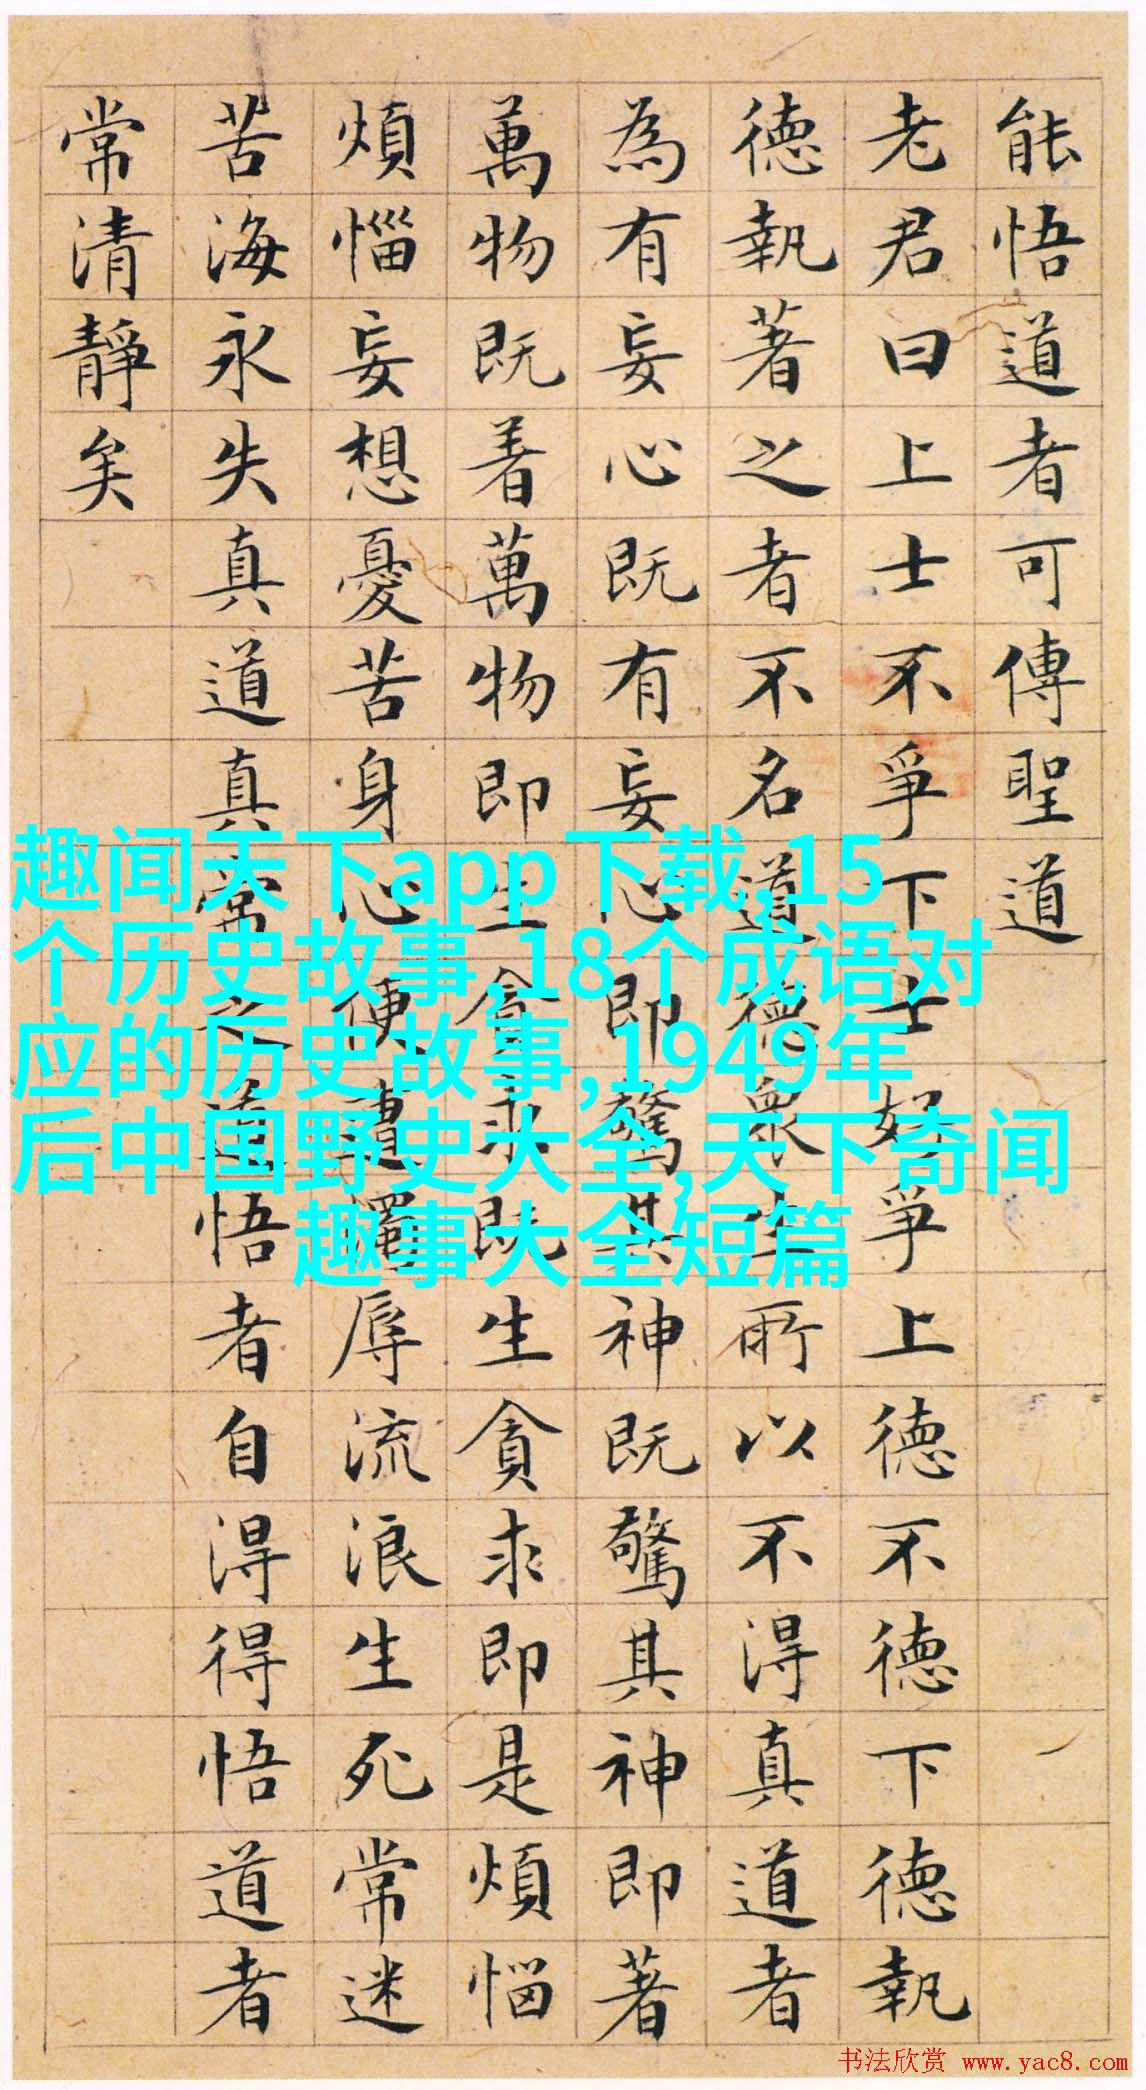 能悟道者可傳聖道
老君曰上士不爭下士好爭上德不德下德執
德執著之者不名道德衆生所以不得真道者
為有妄心既有妄心即驚其神既驚其神即著
萬物既着萬物即生貪求既生貪求即是煩惱
煩惱妄想憂苦身心便遭濁辱流浪生死常迷
苦海永失真道真常之道悟者自得得悟道者
常清靜矣
趣闻天下app下载,15
个历史故事,18个成语对
应的历史故事,1949年
后中国野史大全,天下奇闻
趣事大全短篇
书法欣赏 www.yac8.com